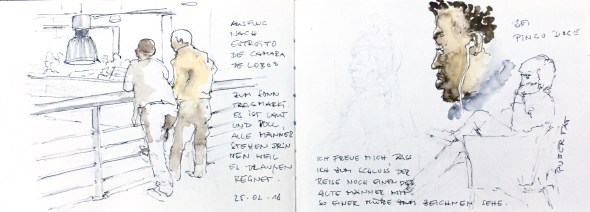 AUSFLUG
NACH
ESTREITO
DE CAMARA
DE LOBOS
ZUM SONN
TAGSMARKT
ES IST LAUT
UND VOLL,
ALLE MÄNNER
STEHEN DRIN
NEN WEIL
ES DRAUSSEN
REGNET.
25.02.16
BEI
PINGO DOCE
ICH FREUE MICH DASS
ICH ZUM SCHLUSS DER
REISE NOCH EINEN DER
ALTE MÄNNER MIT
SO EINER MÜTZE ZUM ZEICHNEN SEHE.